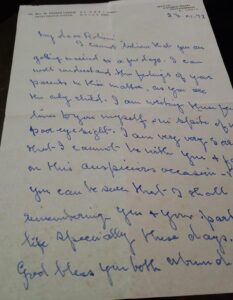 23.XI.92
My dear
I cannot believe that you are
getting married in a few days. I can
well understand the feelings of your
parents in this matter, as you are
the only child. I am writing these few
lines to you myself in spite of my
poor eyesight. I am very very sorry
that I cannot be with you &
on this auspicious occasion
you can be sure that I shall
remembering you & your
life specially these days.
God bless you both